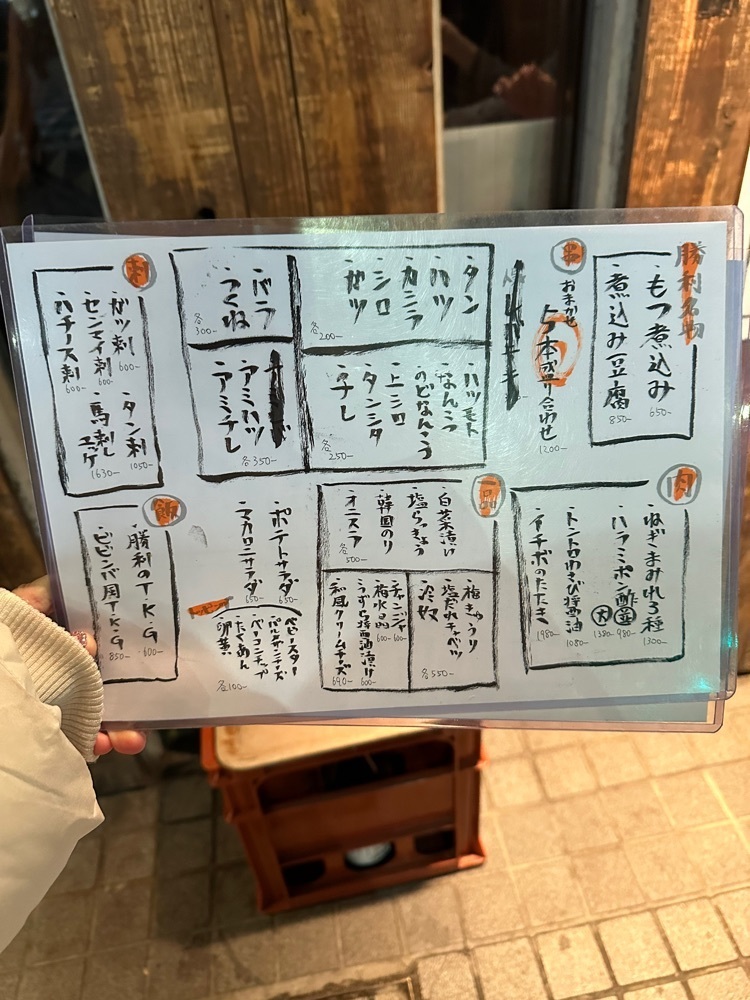 勝利名物
もつ煮込み 650-
煮込み豆腐 850-
串
おまかせ
5本盛り合わせ 1200-
タン
ハツ
カシラ
シロ
ガツ
各200-
ハツモト
なんこつ
のどなんこつ
上シロ
タンシタ
チレ
各250-
バラ
つくね
各300-
アミハツ
アミチレ
各350-
刺
ガツ刺 600-
センマイ刺 600-
ハチノス刺 600-
タン刺 1050-
馬刺しユッケ 1630-
肉
ねぎまみれ3種 1300-
ハラミポン酢 並 980- 大 1380-
トントロわさび醤油 1080-
イチボのたたき 1980-
一品
白菜漬け
塩らっきょう
韓国のり
オニスラ
各500-
梅きゅうり
塩だれキャベツ
冷奴
各550-
チャンジャ 600-
梅水晶 600-
うずら醤油漬け 600-
和風クリームチーズ 690-
ポテトサラダ 650-
マカロニサラダ 650-
トッピング
ベビースター
パルメザンチーズ
ベーコンチップ
たくあん
卵黄
各100-
飯
勝利のT・K・G 600-
ビビンバ風T・K・G 850-